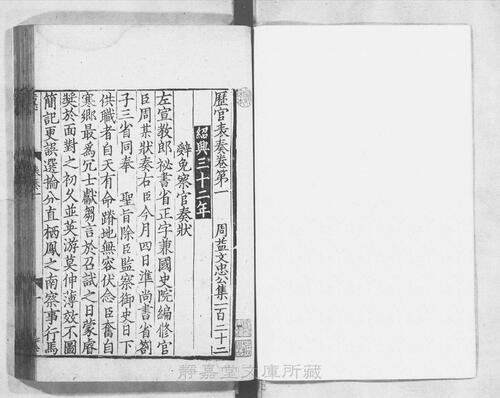 歷官表奏卷第一　周益文忠公集一百二十二
紹興三十二年
辭免察官奏狀
左宣教郎祕書省正字兼國史院編修官
臣周某狀奏右臣今月四日準尚書省劄
子三省同奉　聖旨除臣監察御史日下
供職者自天有命蹐地無容伏念臣奮自
寒鄉最爲冗士獻芻言於召試之日蒙睿
奬於面對之初久並英游莫伸薄效不圖
簡記更誤選掄分直栖鳳之南察事行馬
靜嘉堂文庫所藏